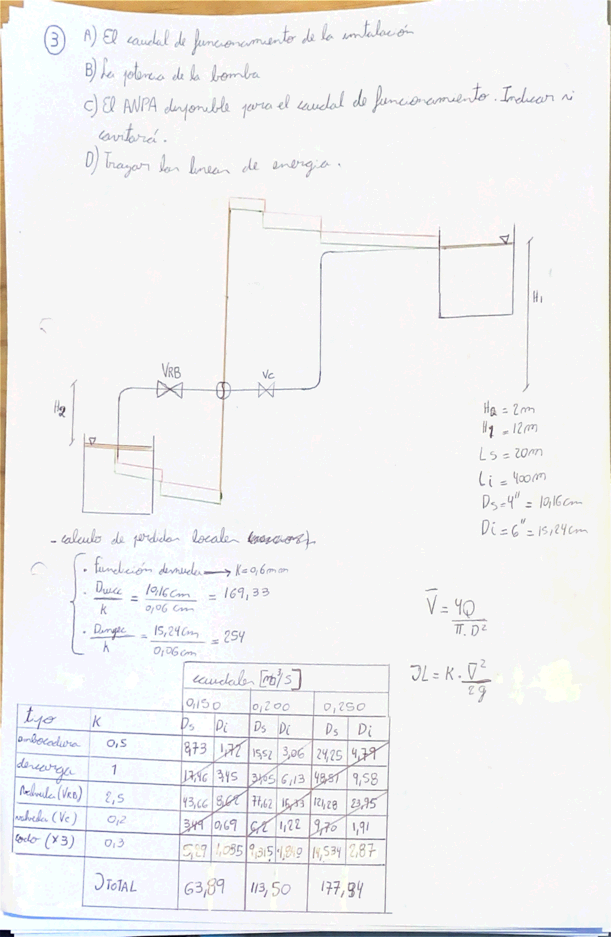 3 A) El caudal de funcionamiento de la instalación
B) La potencia de la bomba
C) El ANPA disponible para el caudal de funcionamiento. Indicar si
cavitará.
D) Trazar las lineas de energia.
H1
VRB
Vc
H2
H2 = 2m
H1 = 12m
Ls = 20m
Li = 400m
Ds = 4" = 10,16cm
Di = 6" = 15,24cm
- calculo de perdidas locales
. Fundición desnuda → K=0,6mm
. Dsucc/K = 10,16cm/0,06 cm = 169,33
. Dimpec/K = 15,24cm/0,06cm = 254
V = 4Q/π.D²
JL = K . V²/2g
caudales [m³/s]
0,150 0,200 0,250
tipo K Ds Di Ds Di Ds Di
embocadura 0,5 8,73 1,72 15,52 3,06 24,25 4,79
descarga 1 17,46 3,45 31,05 6,13 48,51 9,58
Valvula (VRB) 2,5 43,66 8,62 77,62 15,33 121,28 23,95
valvula (Vc) 0,2 3,49 0,69 6,2 1,22 9,70 1,91
codo (x3) 0,3 5,29 1,035 9,315 1,819 14,534 2,87
J TOTAL 63,89 113,50 177,94